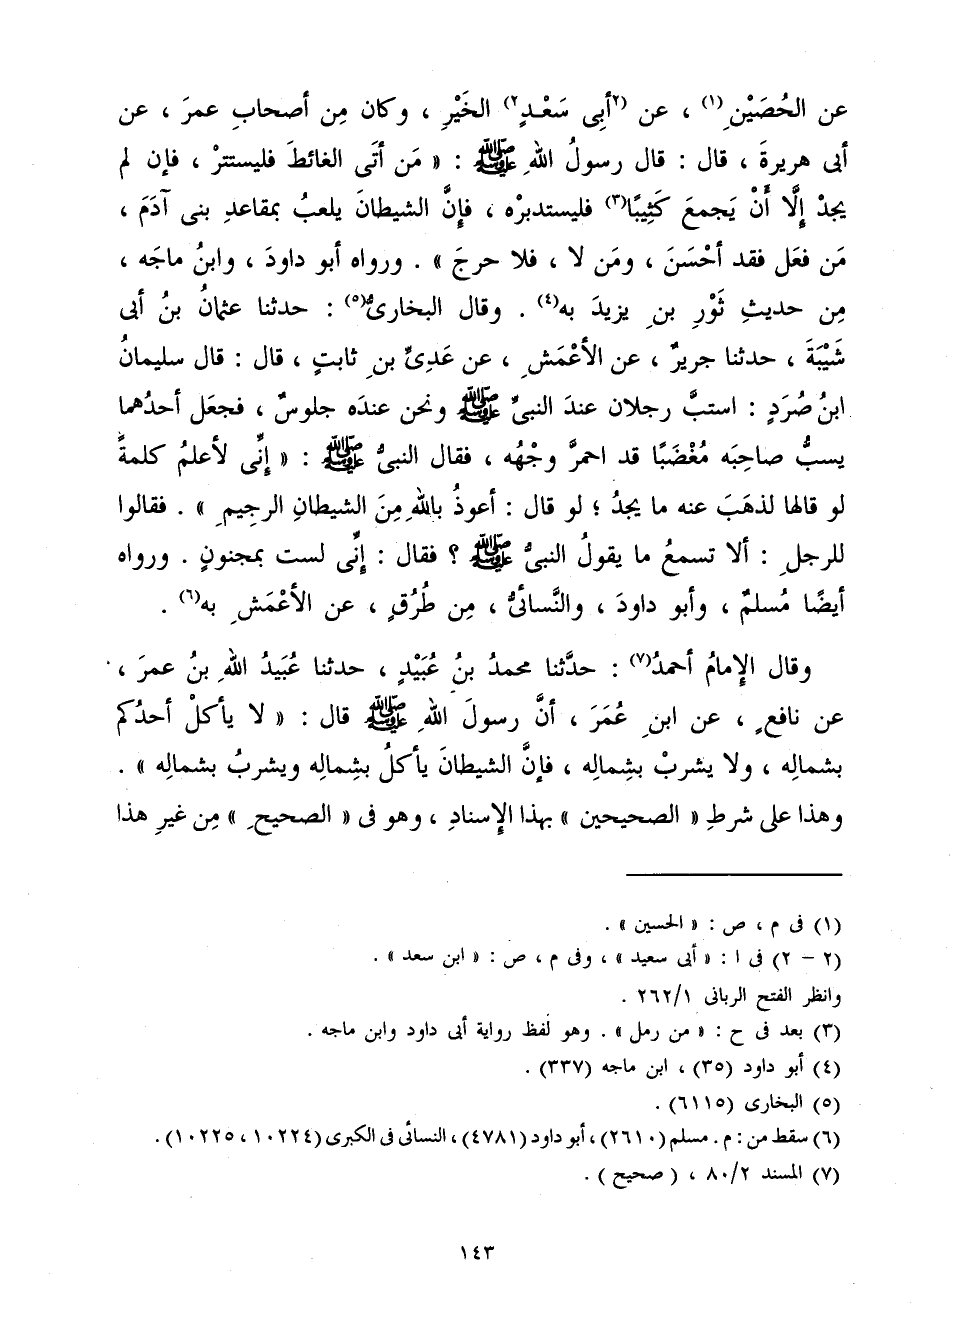 عن الحُصَيْنِ(١) ، عن (٢أبِى سَعْدٍ٢) الخَيْرِ ، وكان مِن أصحابِ عمرَ ، عن
أبى هريرةَ ، قال : قال رسولُ اللهِ ﷺ : « مَن أتَى الغائطَ فليستترْ ، فإن لم
يجدْ إلَّا أَنْ يَجمعَ كَثِيبًا(٣) فليستدبرْه ، فإنَّ الشيطانَ يلعبُ بمقاعدِ بنى آدَمَ ،
مَن فعَل فقد أحْسَنَ ، ومَن لا ، فلا حرجَ » . ورواه أبو داودَ ، وابنُ ماجَه ،
مِن حديثِ ثَوْرِ بنِ يزيدَ به(٤) . وقال البخارىُّ(٥) : حدثنا عثمانُ بنُ أبى
شَيْبَةَ ، حدثنا جريرٌ ، عن الأعْمَشِ ، عن عَدِىِّ بنِ ثابتٍ ، قال : قال سليمانُ
ابنُ صُرَدٍ : استبَّ رجلان عندَ النبىِّ ﷺ ونحن عندَه جلوسٌ ، فجعَل أحدُهما
يسبُّ صاحِبَه مُغْضَبًا قد احمرَّ وجْهُه ، فقال النبىُّ ﷺ : « إنِّى لأعلمُ كلمةً
لو قالها لذهَبَ عنه ما يجدُ ؛ لو قال : أعوذُ باللهِ مِنَ الشيطانِ الرجيمِ » . فقالوا
للرجلِ : ألا تسمعُ ما يقولُ النبىُّ ﷺ ؟ فقال : إنِّى لست بمجنونٍ . ورواه
أيضًا مُسلمٌ ، وأبو داودَ ، والنَّسائىُّ ، مِن طُرُقٍ ، عن الأعْمَشِ به(٦) .
وقال الإمامُ أحمدُ(٧) : حدَّثنا محمدُ بنُ عُبَيْدٍ ، حدثنا عُبَيدُ اللهِ بنُ عمرَ ،
عن نافعٍ ، عن ابنِ عُمَرَ ، أنَّ رسولَ اللهِ ﷺ قال : « لا يأكلْ أحدُكم
بشمالِه ، ولا يشربْ بشِمالِه ، فإنَّ الشيطانَ يأكلُ بشِمالِه ويشربُ بشمالِه » .
وهذا على شرطِ « الصحيحين » بهذا الإسنادِ ، وهو فى « الصحيحِ » مِن غيرِ هذا
(١) فى م ، ص : « الحسين » .
(٢ - ٢) فى ا : « أبى سعيد » ، وفى م ، ص : « ابن سعد » .
وانظر الفتح الربانى ٢٦٢/١ .
(٣) بعد فى ح : « من رمل » . وهو لفظ رواية أبى داود وابن ماجه .
(٤) أبو داود (٣٥) ، ابن ماجه (٣٣٧) .
(٥) البخارى (٦١١٥) .
(٦) سقط من : م . مسلم (٢٦١٠) ، أبو داود (٤٧٨١) ، النسائى فى الكبرى (١٠٢٢٤ ، ١٠٢٢٥) .
(٧) المسند ٨٠/٢ ، ( صحيح ) .
١٤٣